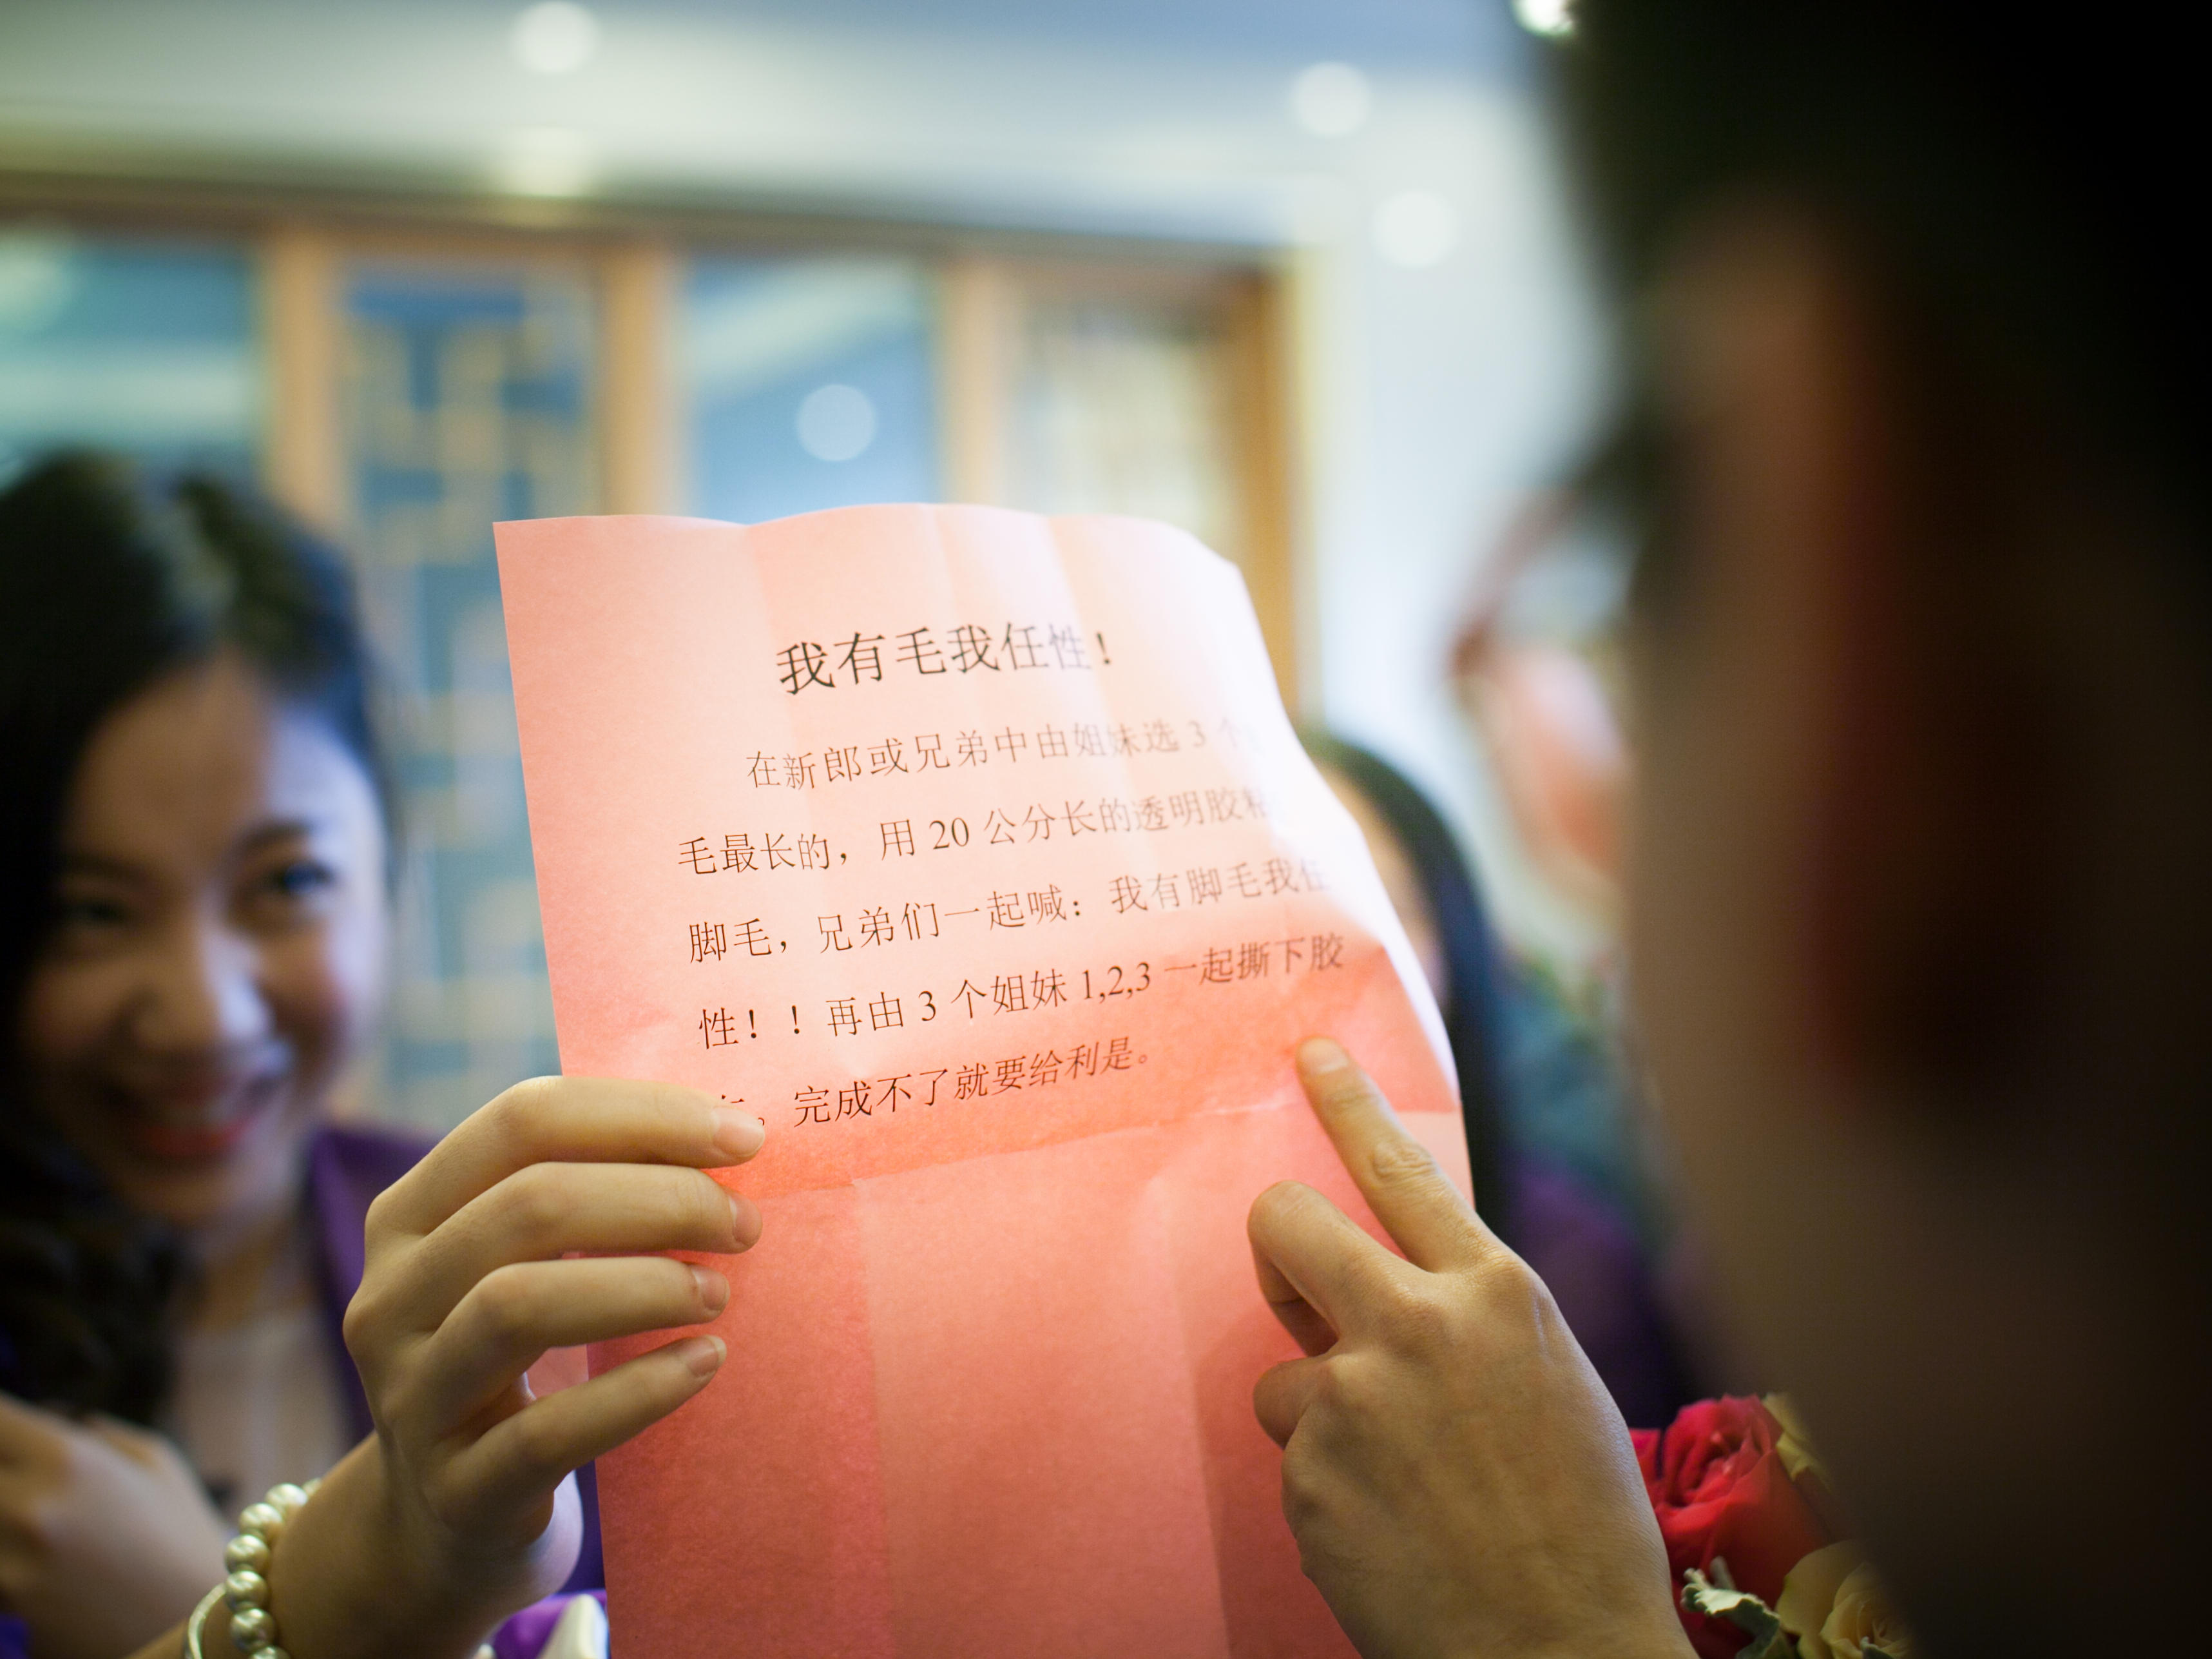 我有毛我任性！
在新郎或兄弟中由姐妹选 3 个
毛最长的，用 20 公分长的透明胶粘
脚毛，兄弟们一起喊：我有脚毛我任
性！！再由 3 个姐妹 1,2,3 一起撕下胶
。完成不了就要给利是。